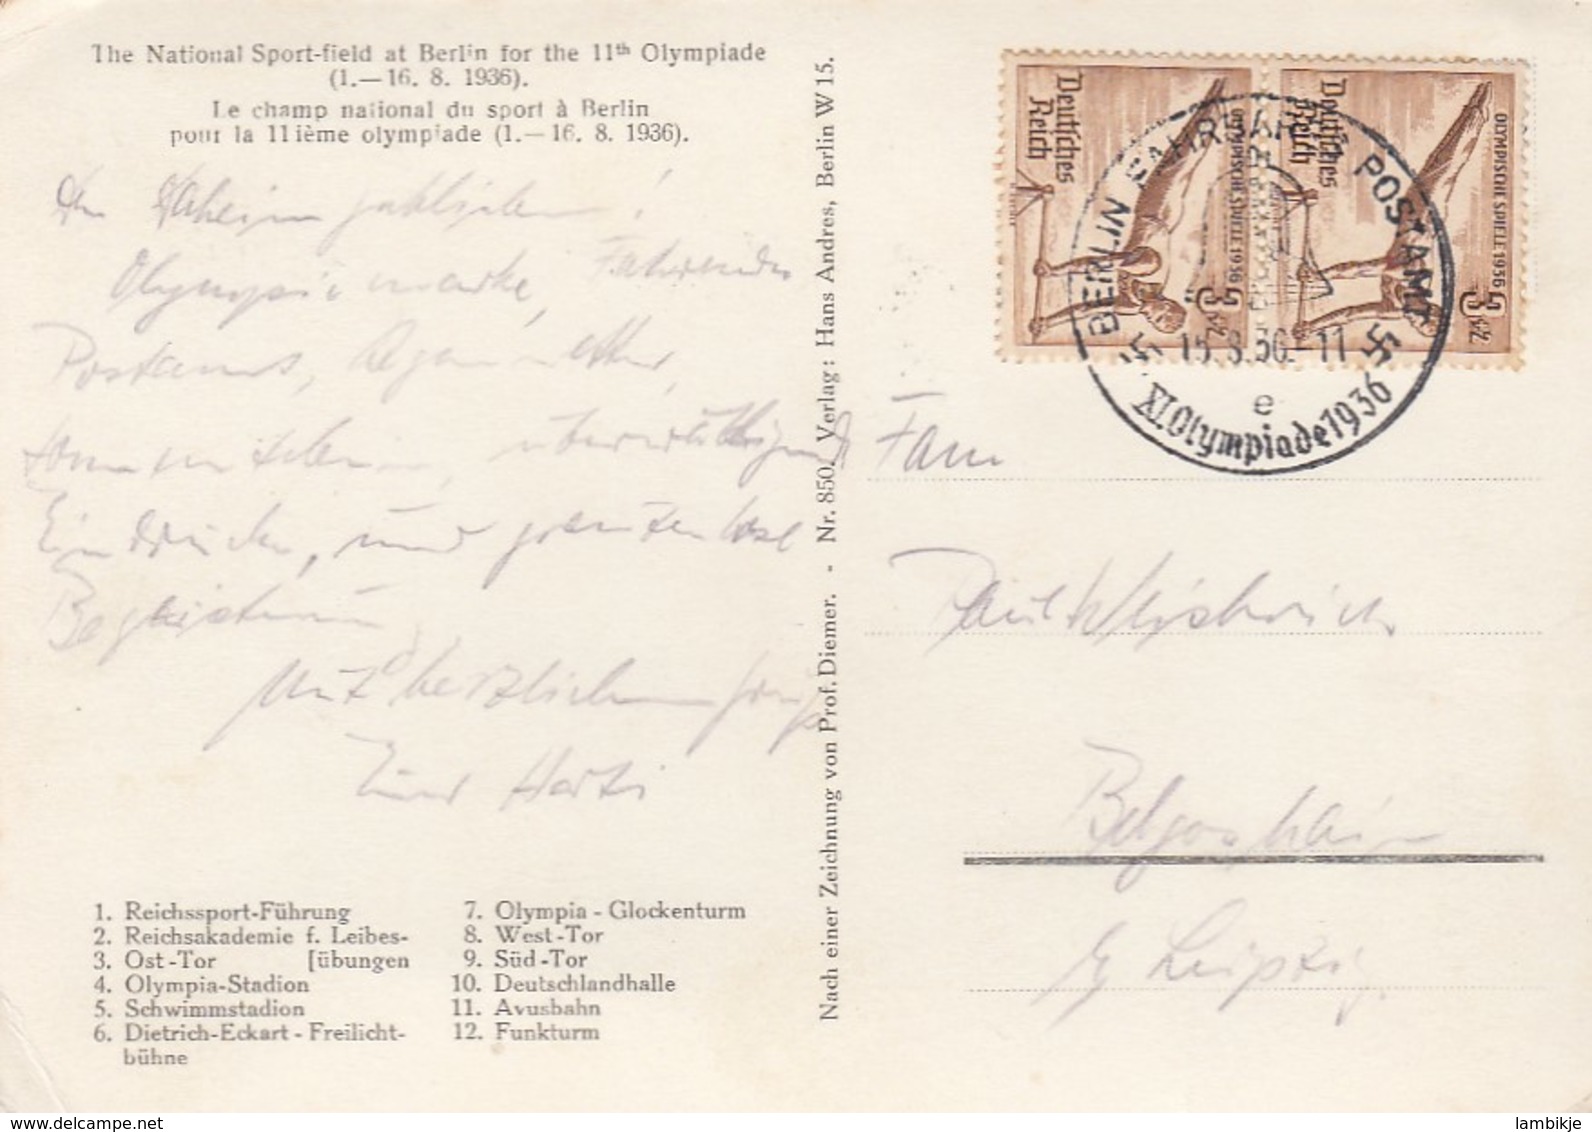 The National Sport-field at Berlin for the 11th Olympiade
(1.—16. 8. 1936).
Le champ national du sport à Berlin
pour la 11ième olympiade (1.—16. 8. 1936).
Olympiamarke, Fahrendes
Postamt,
Sonnenschein, überwältigende
Eindrücke, und grenzenlose
Begeisterung
Mit herzlichem
Euer
1. Reichssport-Führung
2. Reichsakademie f. Leibes-
3. Ost-Tor [übungen
4. Olympia-Stadion
5. Schwimmstadion
6. Dietrich-Eckart-Freilicht-
bühne
7. Olympia-Glockenturm
8. West-Tor
9. Süd-Tor
10. Deutschlandhalle
11. Avusbahn
12. Funkturm
Nach einer Zeichnung von Prof. Diemer. - Nr. 850. Verlag: Hans Andres, Berlin W 15.
Deutsches
Reich
OLYMPISCHE SPIELE 1936
3
Deutsches
Reich
OLYMPISCHE SPIELE 1936
3
BERLIN FAHRBAR. POSTAMT
15.8.36.-11
e
XI.Olympiade 1936
Fam
Paul
Leipzig
lambikje